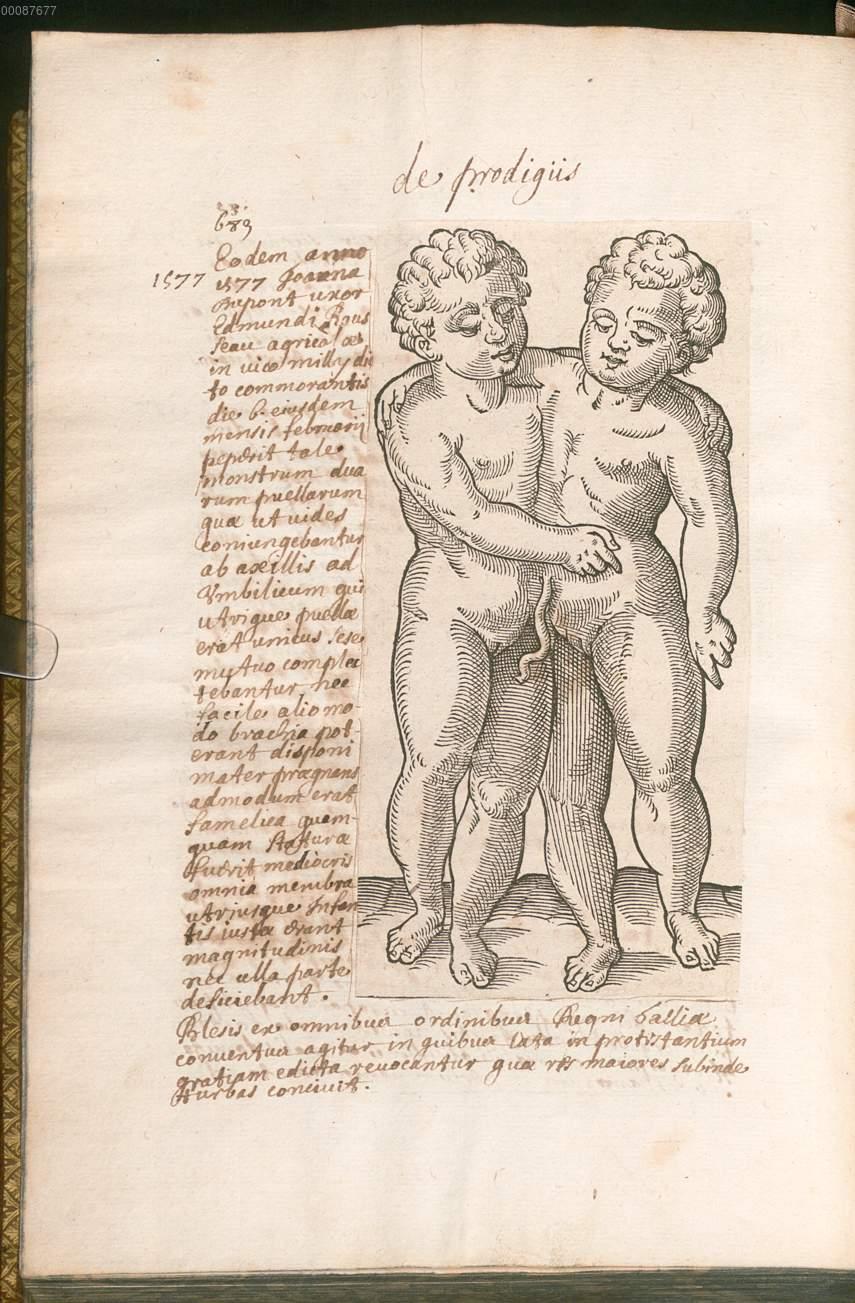 00087677
de prodigiis
683
Eodem anno
1577
1577 Joanna
Dupont uxor
Edmundi Rous
seau agricolæ
in vico milly dic
to commorantis
die 6. eiusdem
mensis februarij
peperit tale
monstrum dua
rum puellarum
quæ ut uides
coniungebantur
ab axillis ad
Vmbilicum qui
utrique puellæ
erat unicus sese
mutuo complec
tebantur nec
facile alio mo-
do brachia pot-
erant disponi
mater prægnans
admodum erat
famelica quam-
quam statura
fuerit mediocris
omnia membra
utriusque infan
tis iusta erant
magnitudinis
nec ulla parte
deficiebant.
Blesis ex omnibus ordinibus Regni Galliæ
conventus agitur in quibus lata in protistantium
gratiam edicta revocantur quæ res maiores subinde
turbas concivit.